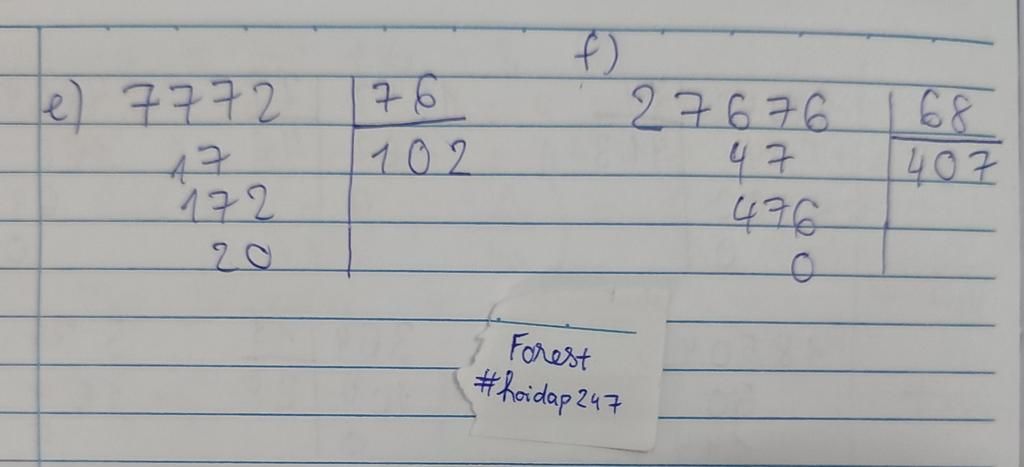 f)
e) 7772 76 27676 68
17 102 47 407
172 476
20 0
Forest
#hoidap247